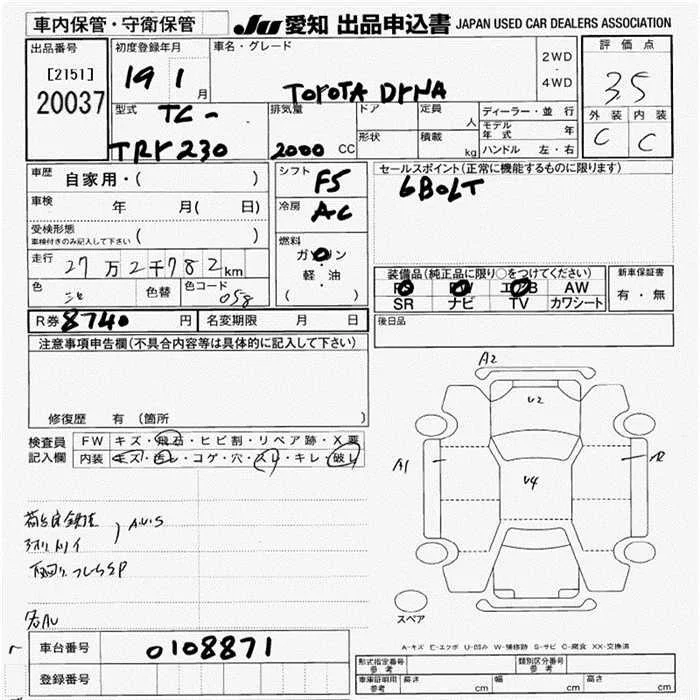 車内保管・守衛保管
JU 愛知 出品申込書 JAPAN USED CAR DEALERS ASSOCIATION
出品番号
[2151]
20037
初度登録年月
19 1月
車名・グレード
TOYOTA DYNA
2WD
・
4WD
評価点
3.5
外装 内装
C C
型式
TC-
TRY230
排気量
2000 CC
ドア
定員
人
形状
積載
kg
ディーラー・並行
モデル年式 年
ハンドル 左・右
車歴 自家用・( )
車検 年 月( 日)
受検形態
車検付きのみ記入して下さい ( )
走行 27万2千782km
色
色替
色コード 058
シフト F5
冷房 AC
燃料
ガソリン
・
軽・油
( )
セールスポイント(正常に機能するものに限ります)
6BOLT
装備品(純正品に限り○をつけてください)
PS PW エアB AW
SR ナビ TV カワシート
新車保証書
有・無
後日品
R券 8740円
名変期限 月 日
注意事項申告欄(不具合内容等は具体的に記入して下さい)
修復歴 有(箇所 )
検査員記入欄
FW キズ・飛石・ヒビ割・リペア跡・X要
内装 キズ・汚レ・コゲ・穴・スレ・キレ・破レ
A2
U2
A1
U4
スペア
A-キズ E-エクボ U-凹み W-補修跡 S-サビ C-腐食 XX-交換済
車台番号 0108871
登録番号
形式指定番号 参考
類別区分番号 参考
車庫証明用 参考 長さ cm 幅 cm 高さ cm